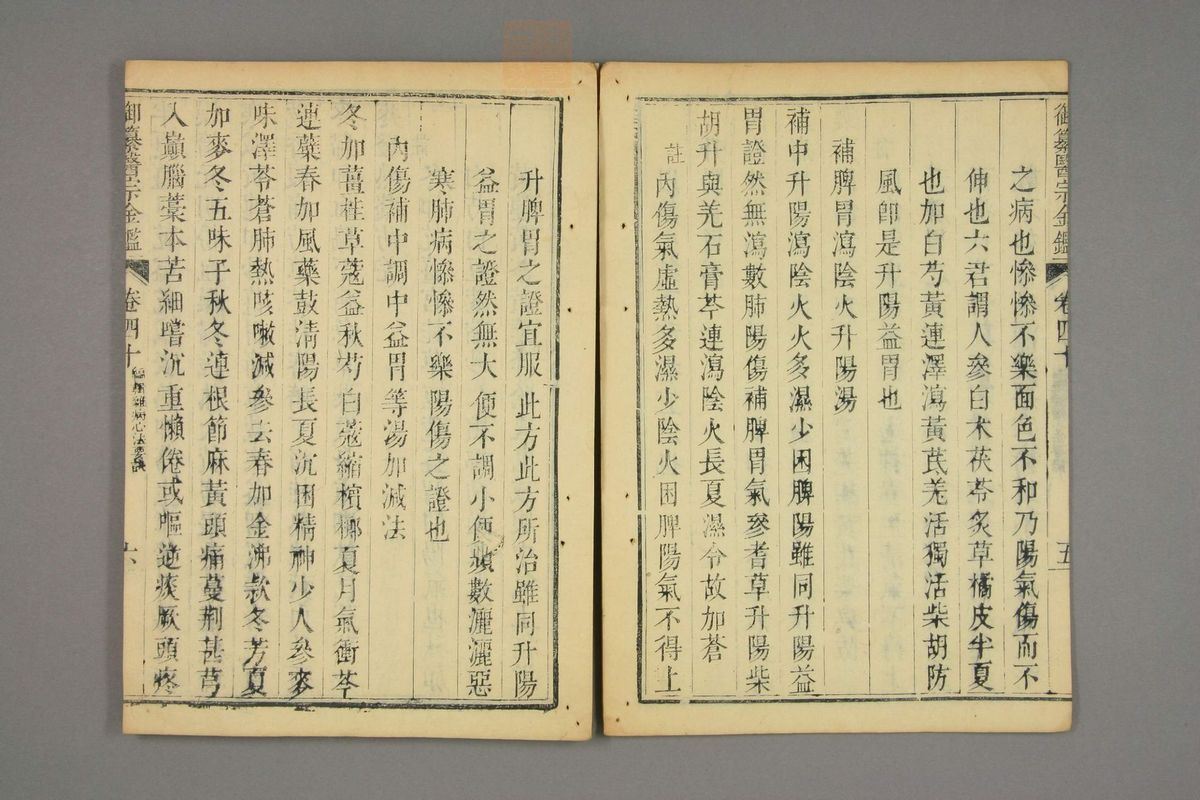 御纂醫宗金鑑 卷四十 五
之病也慘慘不樂面色不和乃陽氣傷而不
伸也六君謂人參白朮茯苓炙草橘皮半夏
也加白芍黃連澤瀉黃芪羌活獨活柴胡防
風卽是升陽益胃也
補脾胃瀉陰火升陽湯
補中升陽瀉陰火火多濕少困脾陽雖同升陽益
胃證然無瀉數肺陽傷補脾胃氣參耆草升陽柴
胡升與羌石膏芩連瀉陰火長夏濕令故加蒼
註內傷氣虛熱多濕少陰火困脾陽氣不得上
升脾胃之證宜服此方此方所治雖同升陽
益胃之證然無大便不調小便頻數灑灑惡
寒肺病慘慘不樂陽傷之證也
內傷補中調中益胃等湯加減法
冬加薑桂草蔻益秋芍白蔻縮檳榔夏月氣衝芩
連蘗春加風藥鼓清陽長夏沉困精神少人參麥
味澤苓蒼肺熱咳嗽減參去春加金沸款冬芳夏
加麥冬五味子秋冬連根節麻黃頭痛蔓荆甚芎
入巔腦藁本苦細嘗沉重懶倦或嘔逆痰厥頭疼
御纂醫宗金鑑 卷四十 編輯雜病心法要訣 六